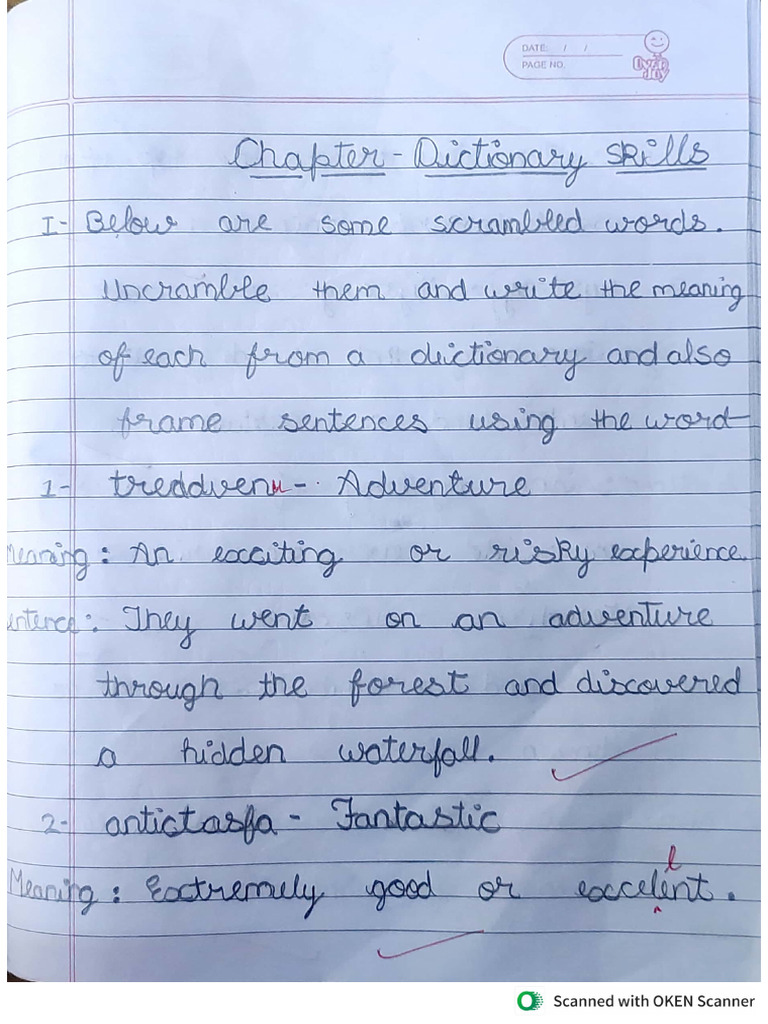 DATE: / /
PAGE NO.
OVER JOY
Chapter - Dictionary Skills
I- Below are some scrambled words.
Uncramble them and write the meaning
of each from a dictionary and also
frame sentences using the word
1- treddvenu - Adventure
Meaning: An exciting or risky experience.
untence: They went on an adventure
through the forest and discovered
a hidden waterfall.
2- antictasfa - Fantastic
l
Meaning: Extremely good or excelent.
Scanned with OKEN Scanner